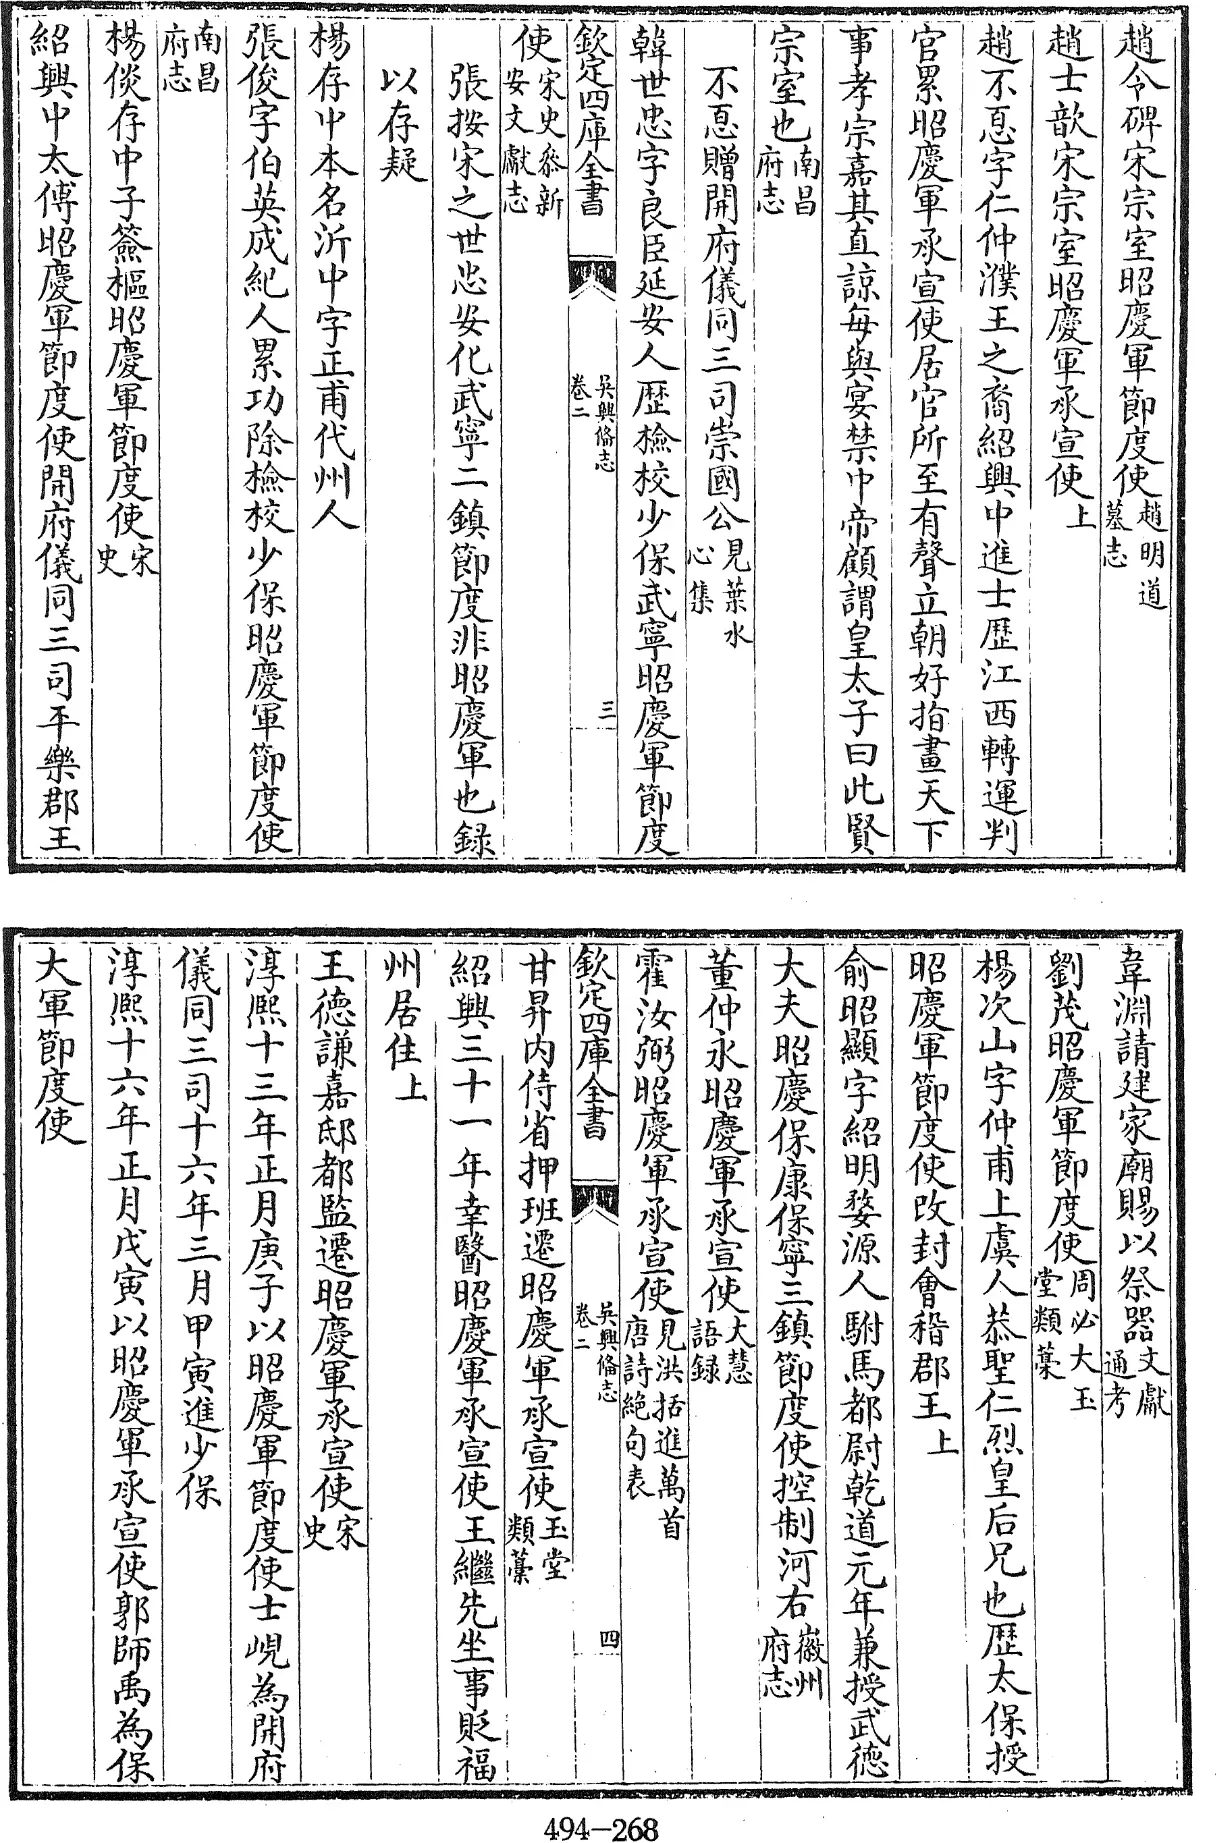 趙令碑宋宗室昭慶軍節度使趙明道墓志
趙士歆宋宗室昭慶軍承宣使上
趙不息字仁仲濮王之裔紹興中進士歴江西轉運判
官累昭慶軍承宣使居官所至有聲立朝好指畫天下
事孝宗嘉其直諒每與宴禁中帝顧謂皇太子曰此賢
宗室也南昌府志
不息贈開府儀同三司崇國公見葉水心集
韓世忠字良臣延安人歴檢校少保武寧昭慶軍節度
欽定四庫全書
吳興備志
卷二
三
使宋史叅新安文獻志
張按宋之世忠安化武寧二鎮節度非昭慶軍也録
以存疑
楊存中本名沂中字正甫代州人
張俊字伯英成紀人累功除檢校少保昭慶軍節度使
南昌府志
楊倓存中子簽樞昭慶軍節度使宋史
紹興中太傅昭慶軍節度使開府儀同三司平樂郡王
韋淵請建家廟賜以祭器文獻通考
劉茂昭慶軍節度使周必大玉堂類藁
楊次山字仲甫上虞人恭聖仁烈皇后兄也歴太保授
昭慶軍節度使改封會稽郡王上
俞昭顯字紹明婺源人駙馬都尉乾道元年兼授武德
大夫昭慶保康保寧三鎮節度使控制河右徽州府志
董仲永昭慶軍承宣使大慧語録
霍汝弼昭慶軍承宣使見洪括進萬首唐詩絕句表
欽定四庫全書
吳興備志
卷二
四
甘昇内侍省押班遷昭慶軍承宣使玉堂類藁
紹興三十一年幸醫昭慶軍承宣使王繼先坐事貶福
州居住上
王德謙嘉邸都監遷昭慶軍承宣使宋史
淳熙十三年正月庚子以昭慶軍節度使士峴為開府
儀同三司十六年三月甲寅進少保
淳熙十六年正月戊寅以昭慶軍承宣使郭師禹為保
大軍節度使
494-268